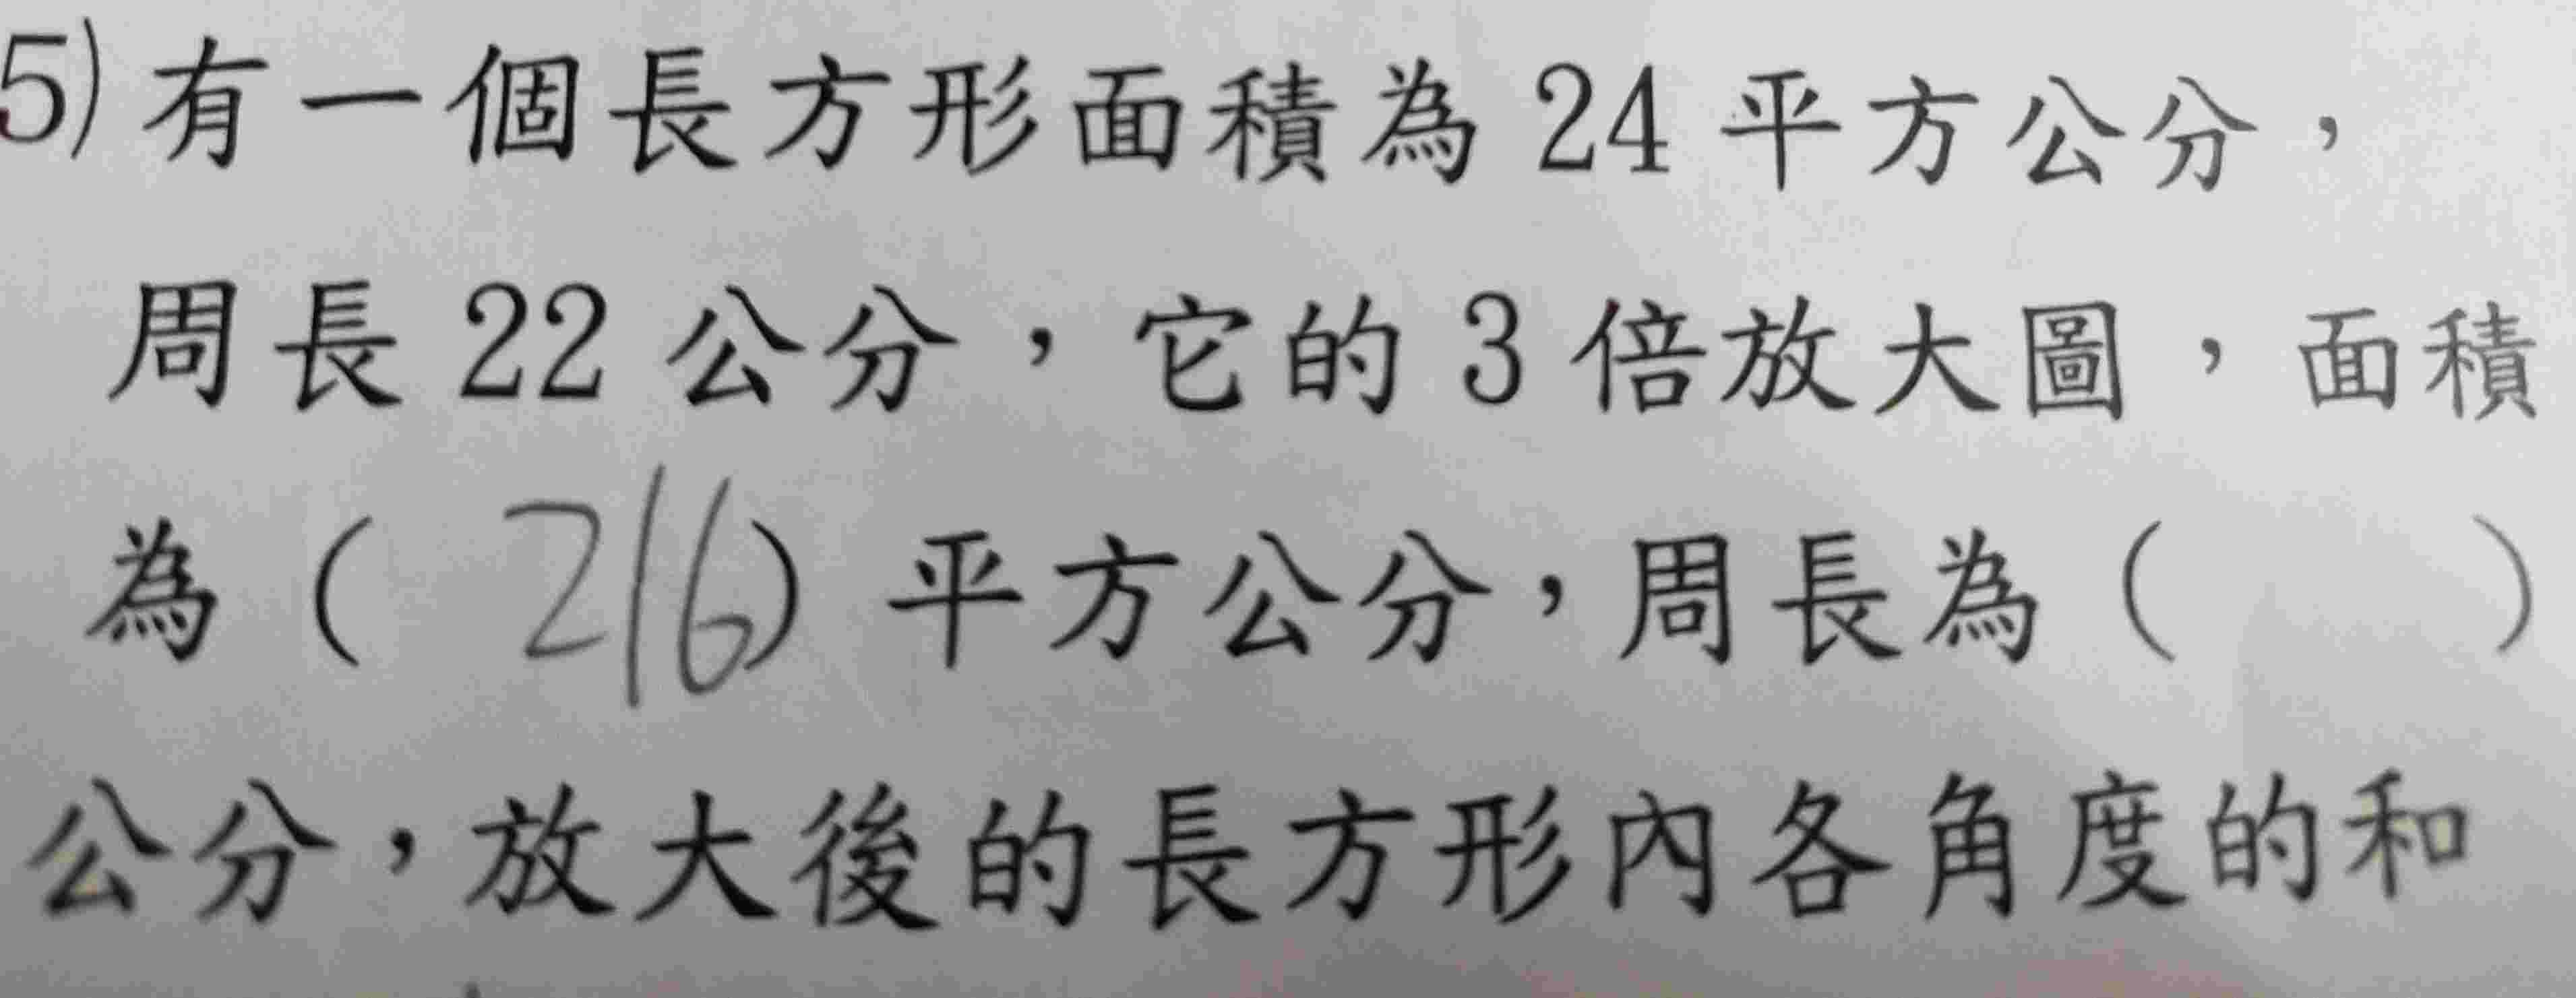 5) 有一個長方形面積為 24 平方公分，
周長 22 公分，它的 3 倍放大圖，面積
為（ 216）平方公分，周長為（　　）
公分，放大後的長方形內各角度的和